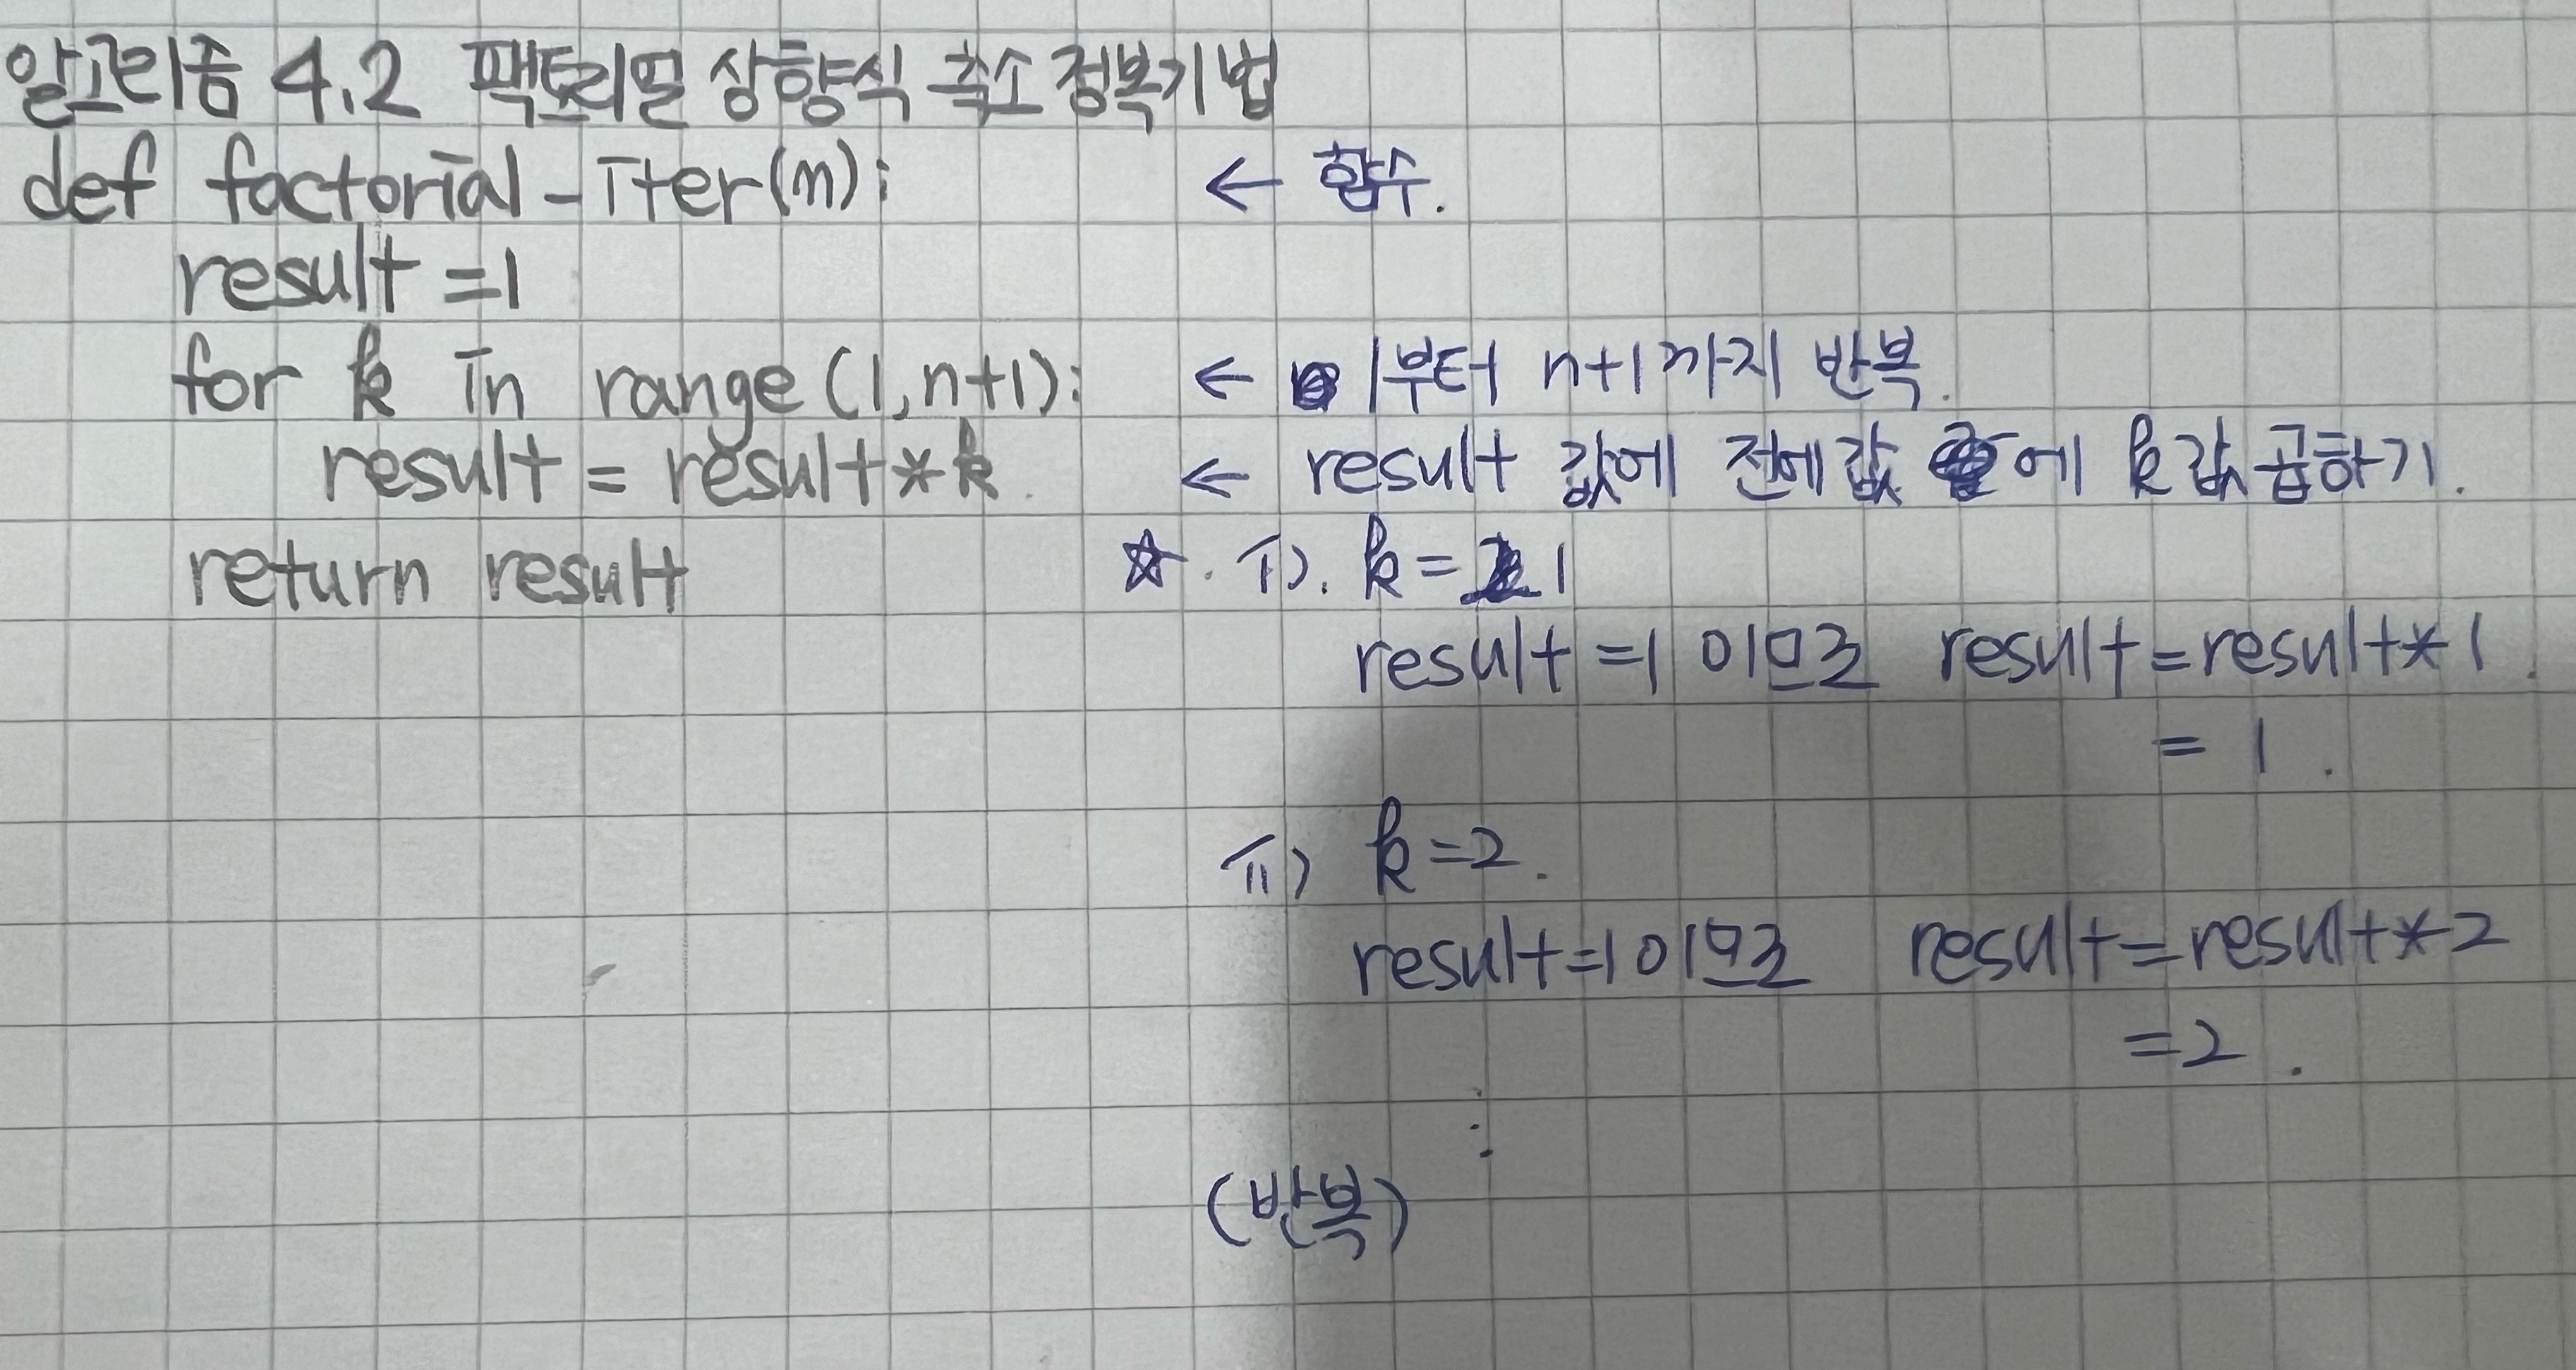 알고리즘 4.2 팩토리얼 상향식 축소 정복기법
def factorial-iter(n): ← 함수.
result =1
for k in range(1,n+1): ← 1부터 n+1까지 반복.
result = result*k ← result 값에 전에값 에 k값 곱하기.
return result ☆. i). k= 1
result =1 이므로 result=result*1.
= 1.
ii) k=2.
result=1이므로 result=result*2
=2.
⋮
(반복)